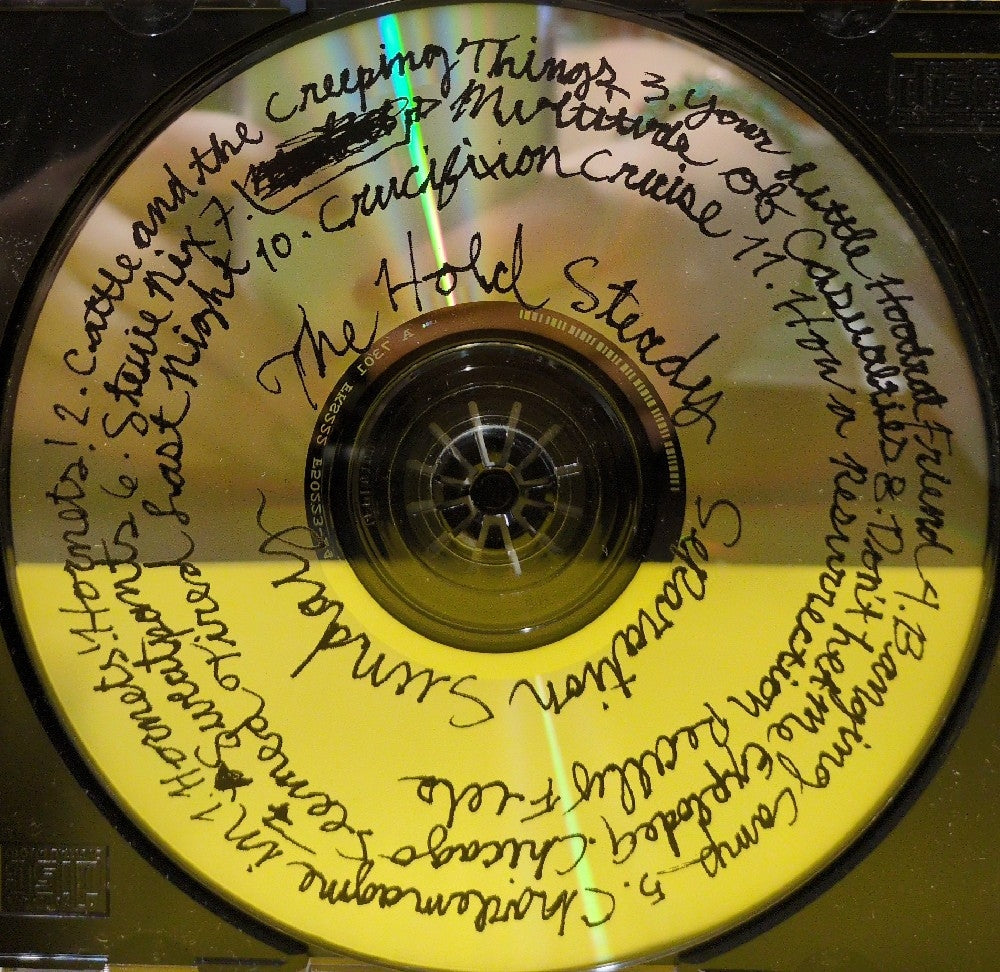 1. Hornets! Hornets! 2. Cattle and the Creeping Things 3. Your Little Hoodrat Friend 4. Banging Camp 5. Charlemagne in
Sweatpants 6. Stevie Nix 7. Multitude of Casualties 8. Don't let me explode 9. Chicago Seemed Tired Last Night
10. Crucifixion Cruise 11. How a Resurrection Really Feels
The Hold Steady
Separation Sunday